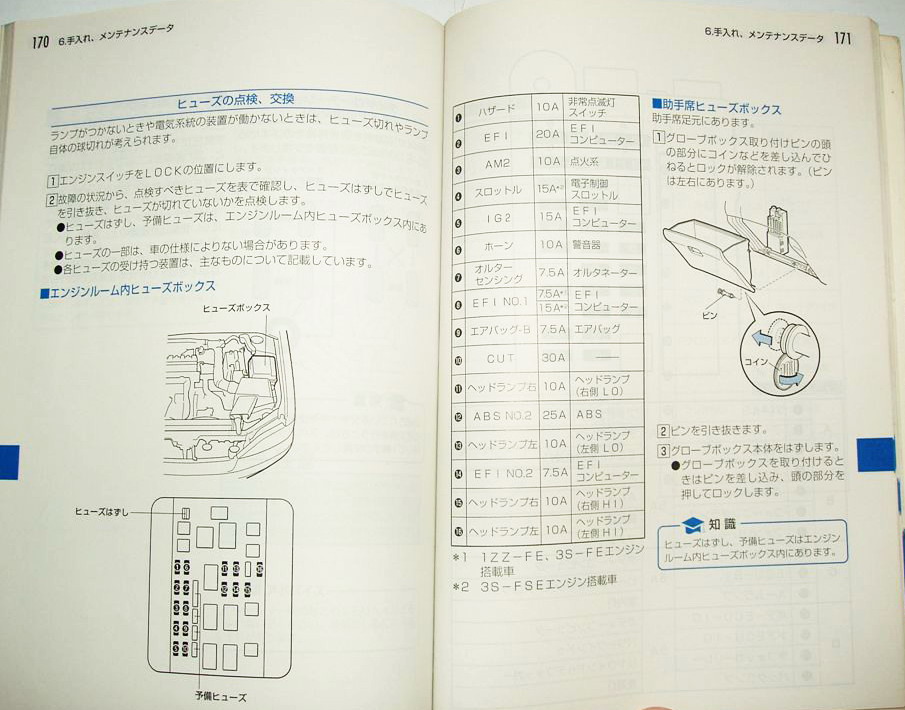 170 6.手入れ、メンテナンスデータ
ヒューズの点検、交換
ランプがつかないときや電気系統の装置が働かないときは、ヒューズ切れやランプ
自体の球切れが考えられます。
1 エンジンスイッチをLOCKの位置にします。
2 故障の状況から、点検すべきヒューズを表で確認し、ヒューズはずしでヒューズ
を引き抜き、ヒューズが切れていないかを点検します。
●ヒューズはずし、予備ヒューズは、エンジンルーム内ヒューズボックス内にあ
ります。
●ヒューズの一部は、車の仕様によりない場合があります。
●各ヒューズの受け持つ装置は、主なものについて記載しています。
■エンジンルーム内ヒューズボックス
ヒューズボックス
ヒューズはずし
予備ヒューズ
6.手入れ、メンテナンスデータ 171
❶ ハザード 10A 非常点滅灯
スイッチ
❷ EFI 20A EFI
コンピューター
❸ AM2 10A 点火系
❹ スロットル 15A*² 電子制御
スロットル
❺ IG2 15A EFI
コンピューター
❻ ホーン 10A 警音器
❼ オルター
センシング 7.5A オルタネーター
❽ EFI NO.1 7.5A*¹ EFI
15A*² コンピューター
❾ エアバッグ-B 7.5A エアバッグ
❿ CUT 30A ——
⓫ ヘッドランプ右 10A ヘッドランプ
(右側LO)
⓬ ABS NO.2 25A ABS
⓭ ヘッドランプ左 10A ヘッドランプ
(左側LO)
⓮ EFI NO.2 7.5A EFI
コンピューター
⓯ ヘッドランプ右 10A ヘッドランプ
(右側HI)
⓰ ヘッドランプ左 10A ヘッドランプ
(左側HI)
*1 1ZZ-FE、3S-FEエンジン
搭載車
*2 3S-FSEエンジン搭載車
■助手席ヒューズボックス
助手席足元にあります。
1 グローブボックス取り付けピンの頭
の部分にコインなどを差し込んでひ
ねるとロックが解除されます。(ピン
は左右にあります。)
ピン
コイン
2 ピンを引き抜きます。
3 グローブボックス本体をはずします。
●グローブボックスを取り付けると
きはピンを差し込み、頭の部分を
押してロックします。
知識
ヒューズはずし、予備ヒューズはエンジン
ルーム内ヒューズボックス内にあります。